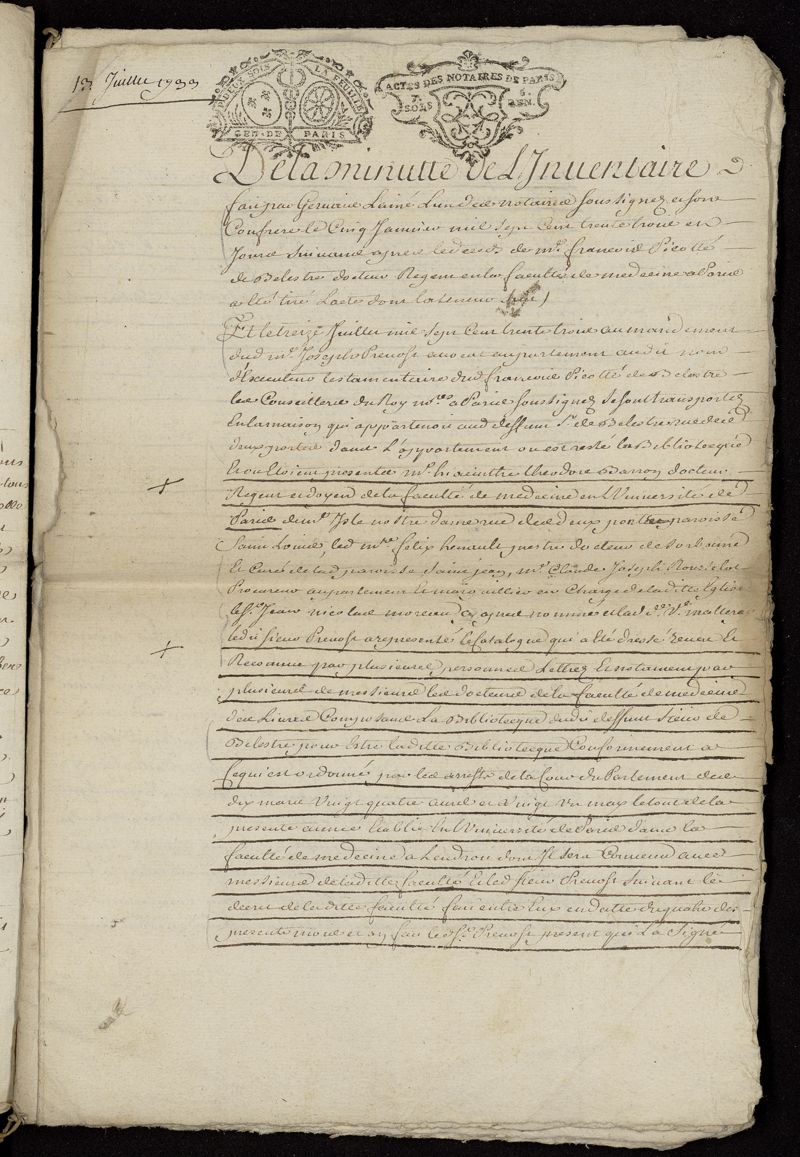 13 Juillet 1733
DEUX SOLS LA FEUILLE
GEN. DE PARIS
ACTES DES NOTAIRES DE PARIS
7. SOLS 6. DEN.
De la minutte de L'Inventaire
fait par Gervaise Lainé L'un des notaires soussignez et son
Confrere le Cinq Janvier mil sept Cent trente trois et
Jours suivans apres le deceds de Mr. françois Picotté
de Belestre docteur Regent en la faculté de medecine a Paris
a été tiré L'acte dont la teneur suit
Et le treize Juillet mil sept Cent trente trois au mandement
dud. mr. Joseph Prevost avocat au parlement audit nom
d'Executeur testamentaire dud. francois Picotté de Belestre
les Conseillers du Roy nores a Paris soussignez se sont transportez
En la maison qui appartenoit aud. deffunt Sr. de Belestre rue des
deux portes dans L'appartement ou est resté la Bibliotecque
Et ou Etoient presents Mr. hiacinthe theodore Baron docteur
Regent et doyen de la faculté de medecine en L'Université de
Paris demt. Isle notre dame rue des deux ponts paroisse
Saint Louis led. mre. felix henault prestre docteur de Sorbonne
Et Curé de lad. paroisse saint Jean, Mr. Claude Joseph Rousselot
Procureur au parlement le marguillier en Charge de la ditte Eglise
le Sr. Jean nicolas moreau
ledit sieur Prevost a representé le Catalogue qui a eté dressé reveu Et
Reconnu par plusieurs personnes Lettrez Et notament par
plusieurs de messieurs les docteurs de la faculté de medecine
des Livres Composant La Bibliotecque dudit deffunt sieur de
Belestre pour Estre la ditte Bibliotecque Conformement a
Ce qui est ordonné par les arrests de la Cour du Parlement des
dix mars Vingt quatre avril et Vingt un may le tout de la
presente année Etablie En L'Université de Paris dans la
faculté de medecine a L'endroit dont Il sera Convenu avec
messieurs de la ditte faculté Et led. sieur Prevost suivant le
decret de la ditte faculté fait entre Eux en datte du quatre des
presents mois et an fait led. Sr. Prevost present qui La Signé